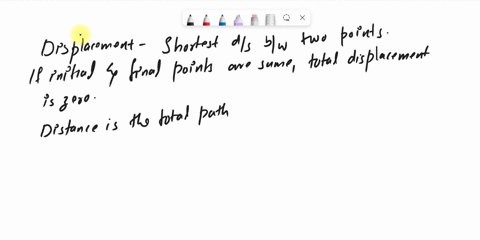 Displacement - Shortest d/s b/w two points.
If initial & final points are same, total displacement
is zero.
Distance is the total path